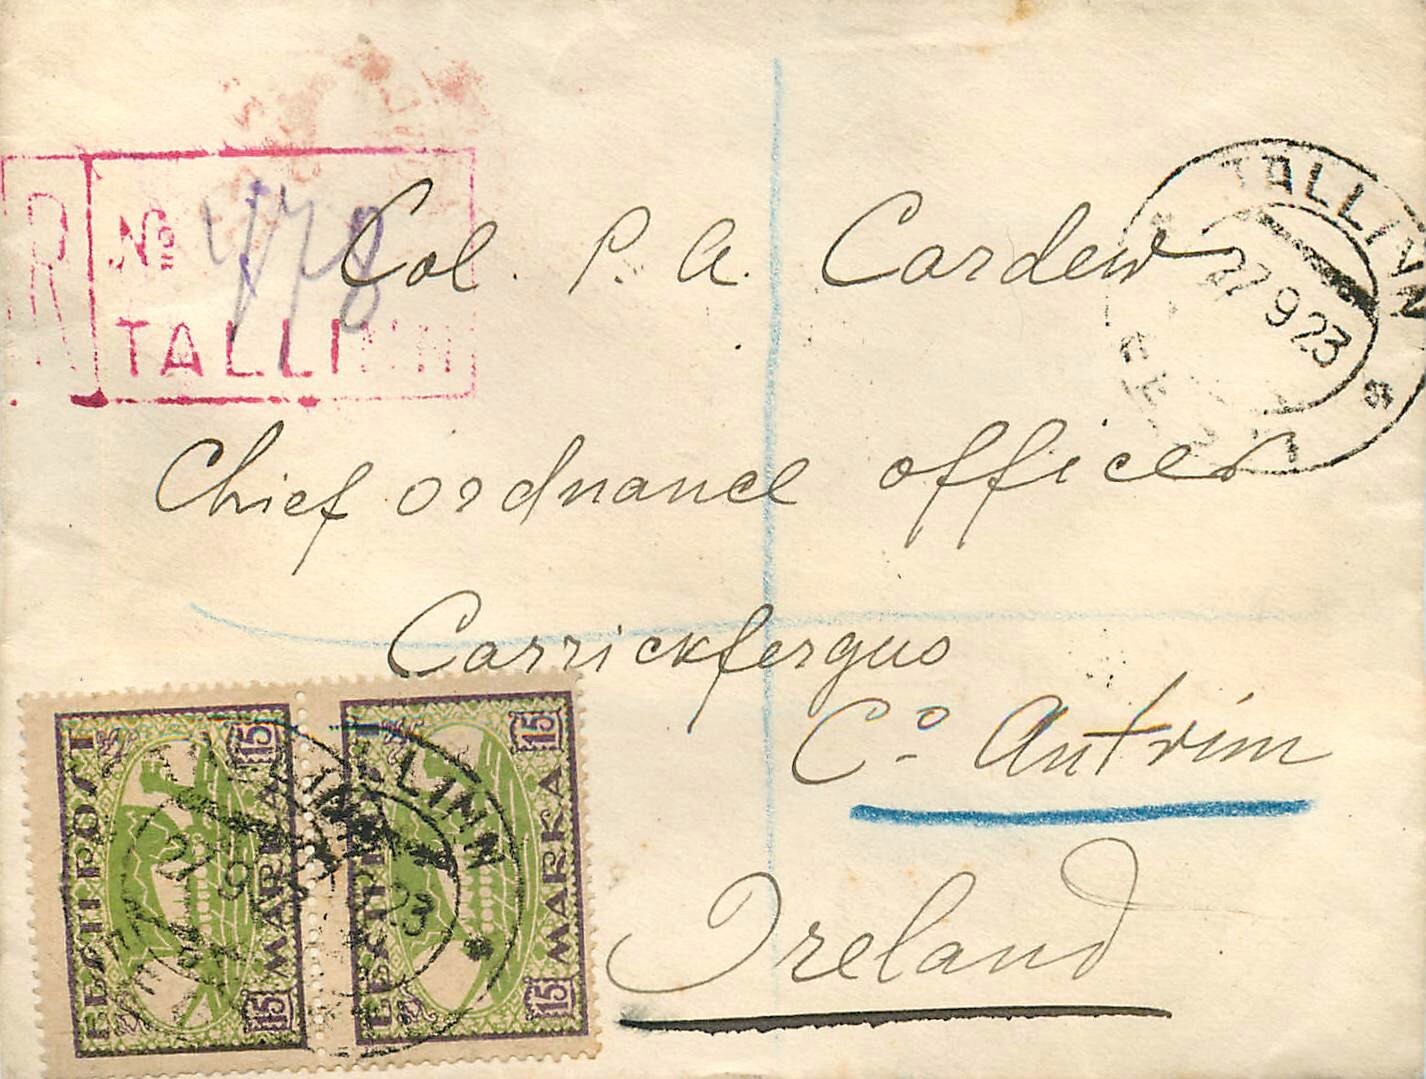 R
№ 478
TALLINN
TALLINN
27 9 23
Col. P. A. Cardew
Chief ordnance officer
Carrickfergus
Co. Antrim
Ireland
EESTI POST
15 MARKA 15
EESTI POST
15 MARKA 15
27 9
TALLINN
23